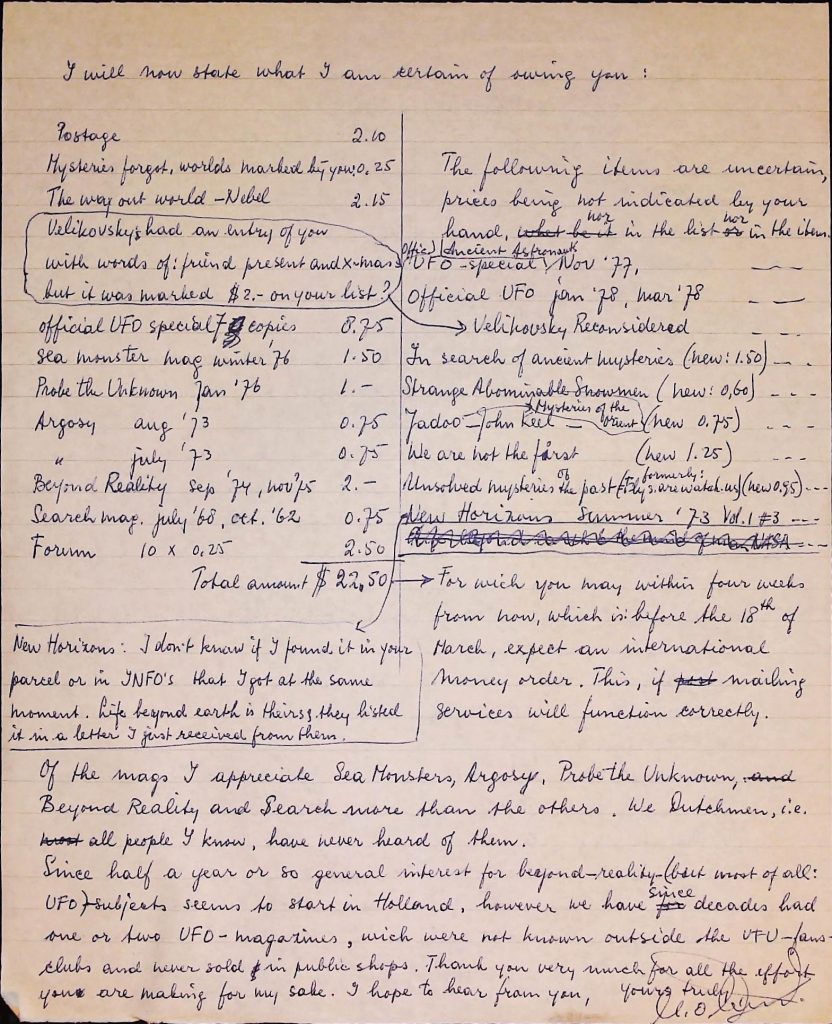 I will now state what I am certain of owing you :
Postage 2.10
Mysteries forgot. worlds marked by you: 0.25
The way out world - Nebel 2.15
Velikovsky's had an entry of you
with words of: friend present and x-mass
but it was marked $2.- on your list?
official UFO special 7 copies 8.75
Sea monster mag winter '76 1.50
Probe the Unknown Jan '76 1.-
Argosy aug '73 0.75
" july '73 0.75
Beyond Reality sep '74, nov '75 2.-
Search mag. july '68, oct. '62 0.75
Forum 10 x 0,25 2.50
Total amount $ 22,50
The following items are uncertain,
prices being not indicated by your
hand, what be it nor in the list or nor in the item.
Offic. UFO - special Ancient Astronaut Nov '77,
Official UFO jan '78, mar '78
Velikovsky Reconsidered
In search of ancient mysteries (new: 1.50)
Strange Abominable Snowmen (new: 0,60)
Jadoo - John Keel - Mysteries of the Orient (new 0.75)
We are not the first (new 1.25)
Unsolved mysteries of the past (formerly: Th.ys.are watch.us) (new 0.95)
New Horizons Summer '73 Vol. 1 #3
For wich you may within four weeks
from now, which is: before the 18th of
March, expect an international
money order. This, if post mailing
services will function correctly.
New Horizons: I don't know if I found it in your
parcel or in INFO's that I got at the same
moment. Life beyond earth is theirs; they listed
it in a letter I just received from them.
Of the mags I appreciate Sea Monsters, Argosy, Probe the Unknown, and
Beyond Reality and Search more than the others. We Dutchmen, i.e.
most all people I know, have never heard of them.
Since half a year or so general interest for beyond-reality-(but most of all:
UFO)-subjects seems to start in Holland, however we have for since decades had
one or two UFO-magazines, wich were not known outside the UFO-fans-
clubs and never sold in public shops. Thank you very much for all the effort
you are making for my sake. I hope to hear from you, yours truly